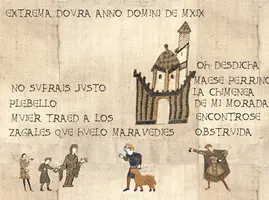 EXTREMA DOVRA ANNO DOMINI DE MXIX
NO SVFRAIS JVSTO
PLEBELLO
MVJER TRAED A LOS
ZAGALES QVE HVELO MARAVEDIES
OH DESDICHA
MAESE PERRINO
LA CHIMENEA
DE MI MORADA
ENCONTROSE
OBSTRVIDA